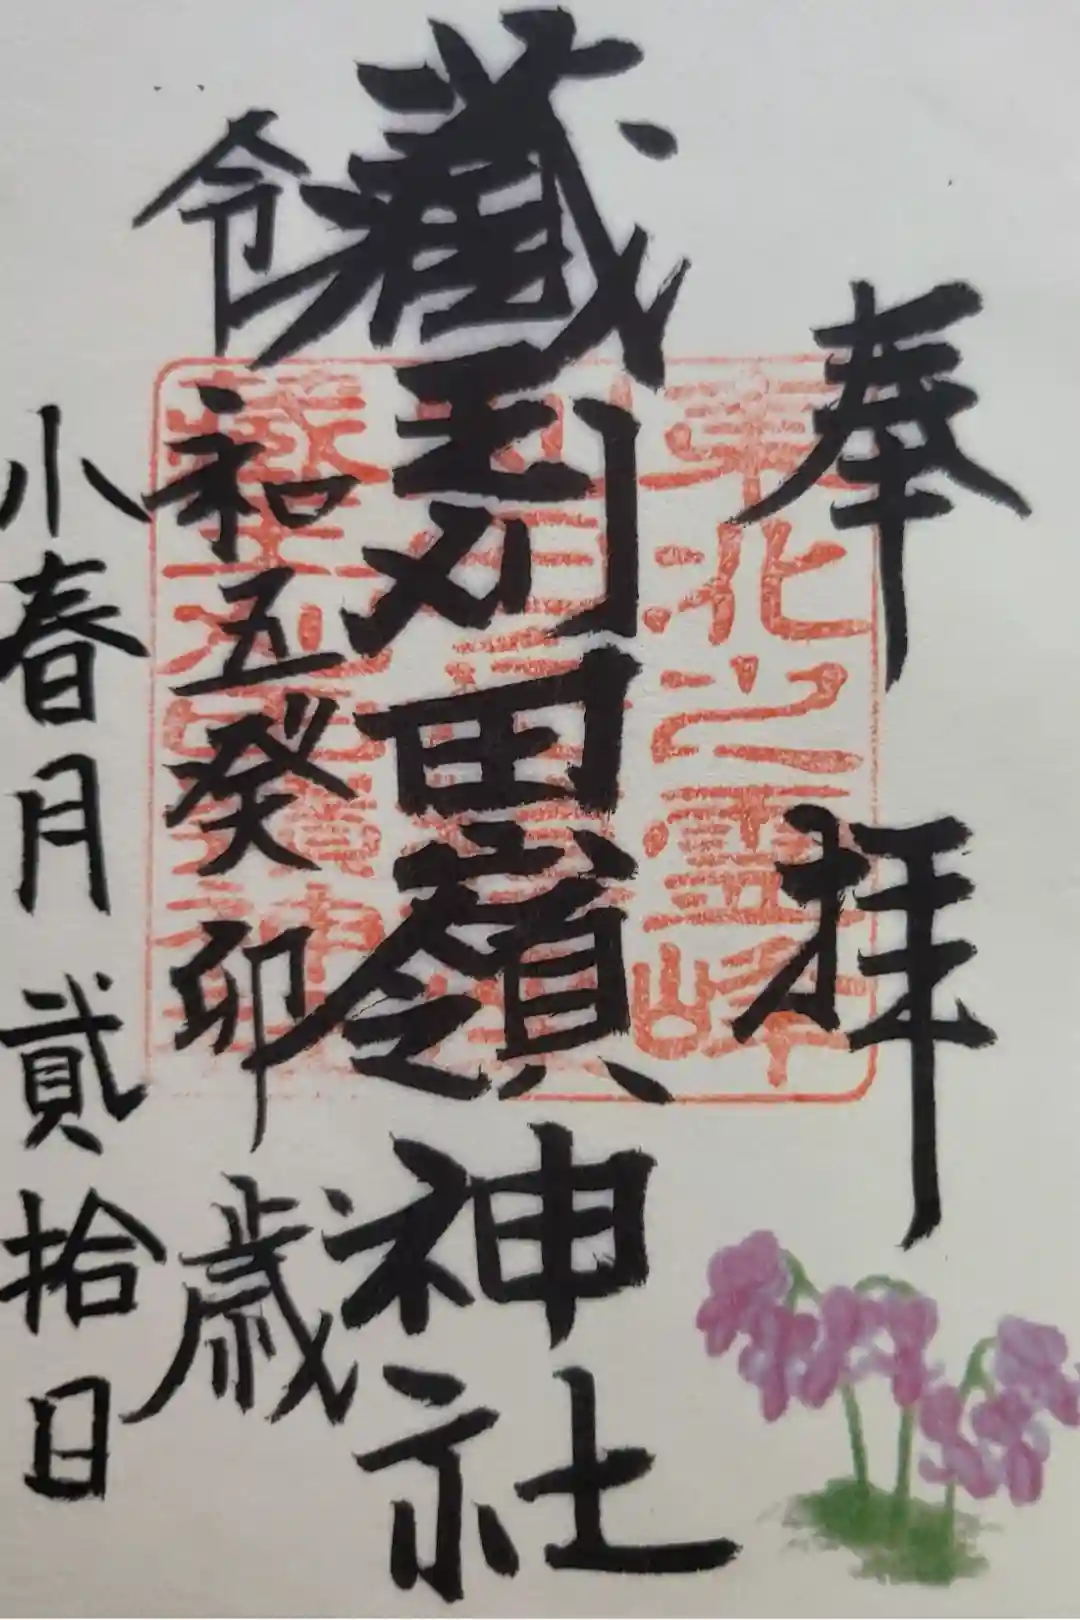 奉拝
東北之靈峰
藏王刈田嶺神社
令和五癸卯歳
小春月貳拾日